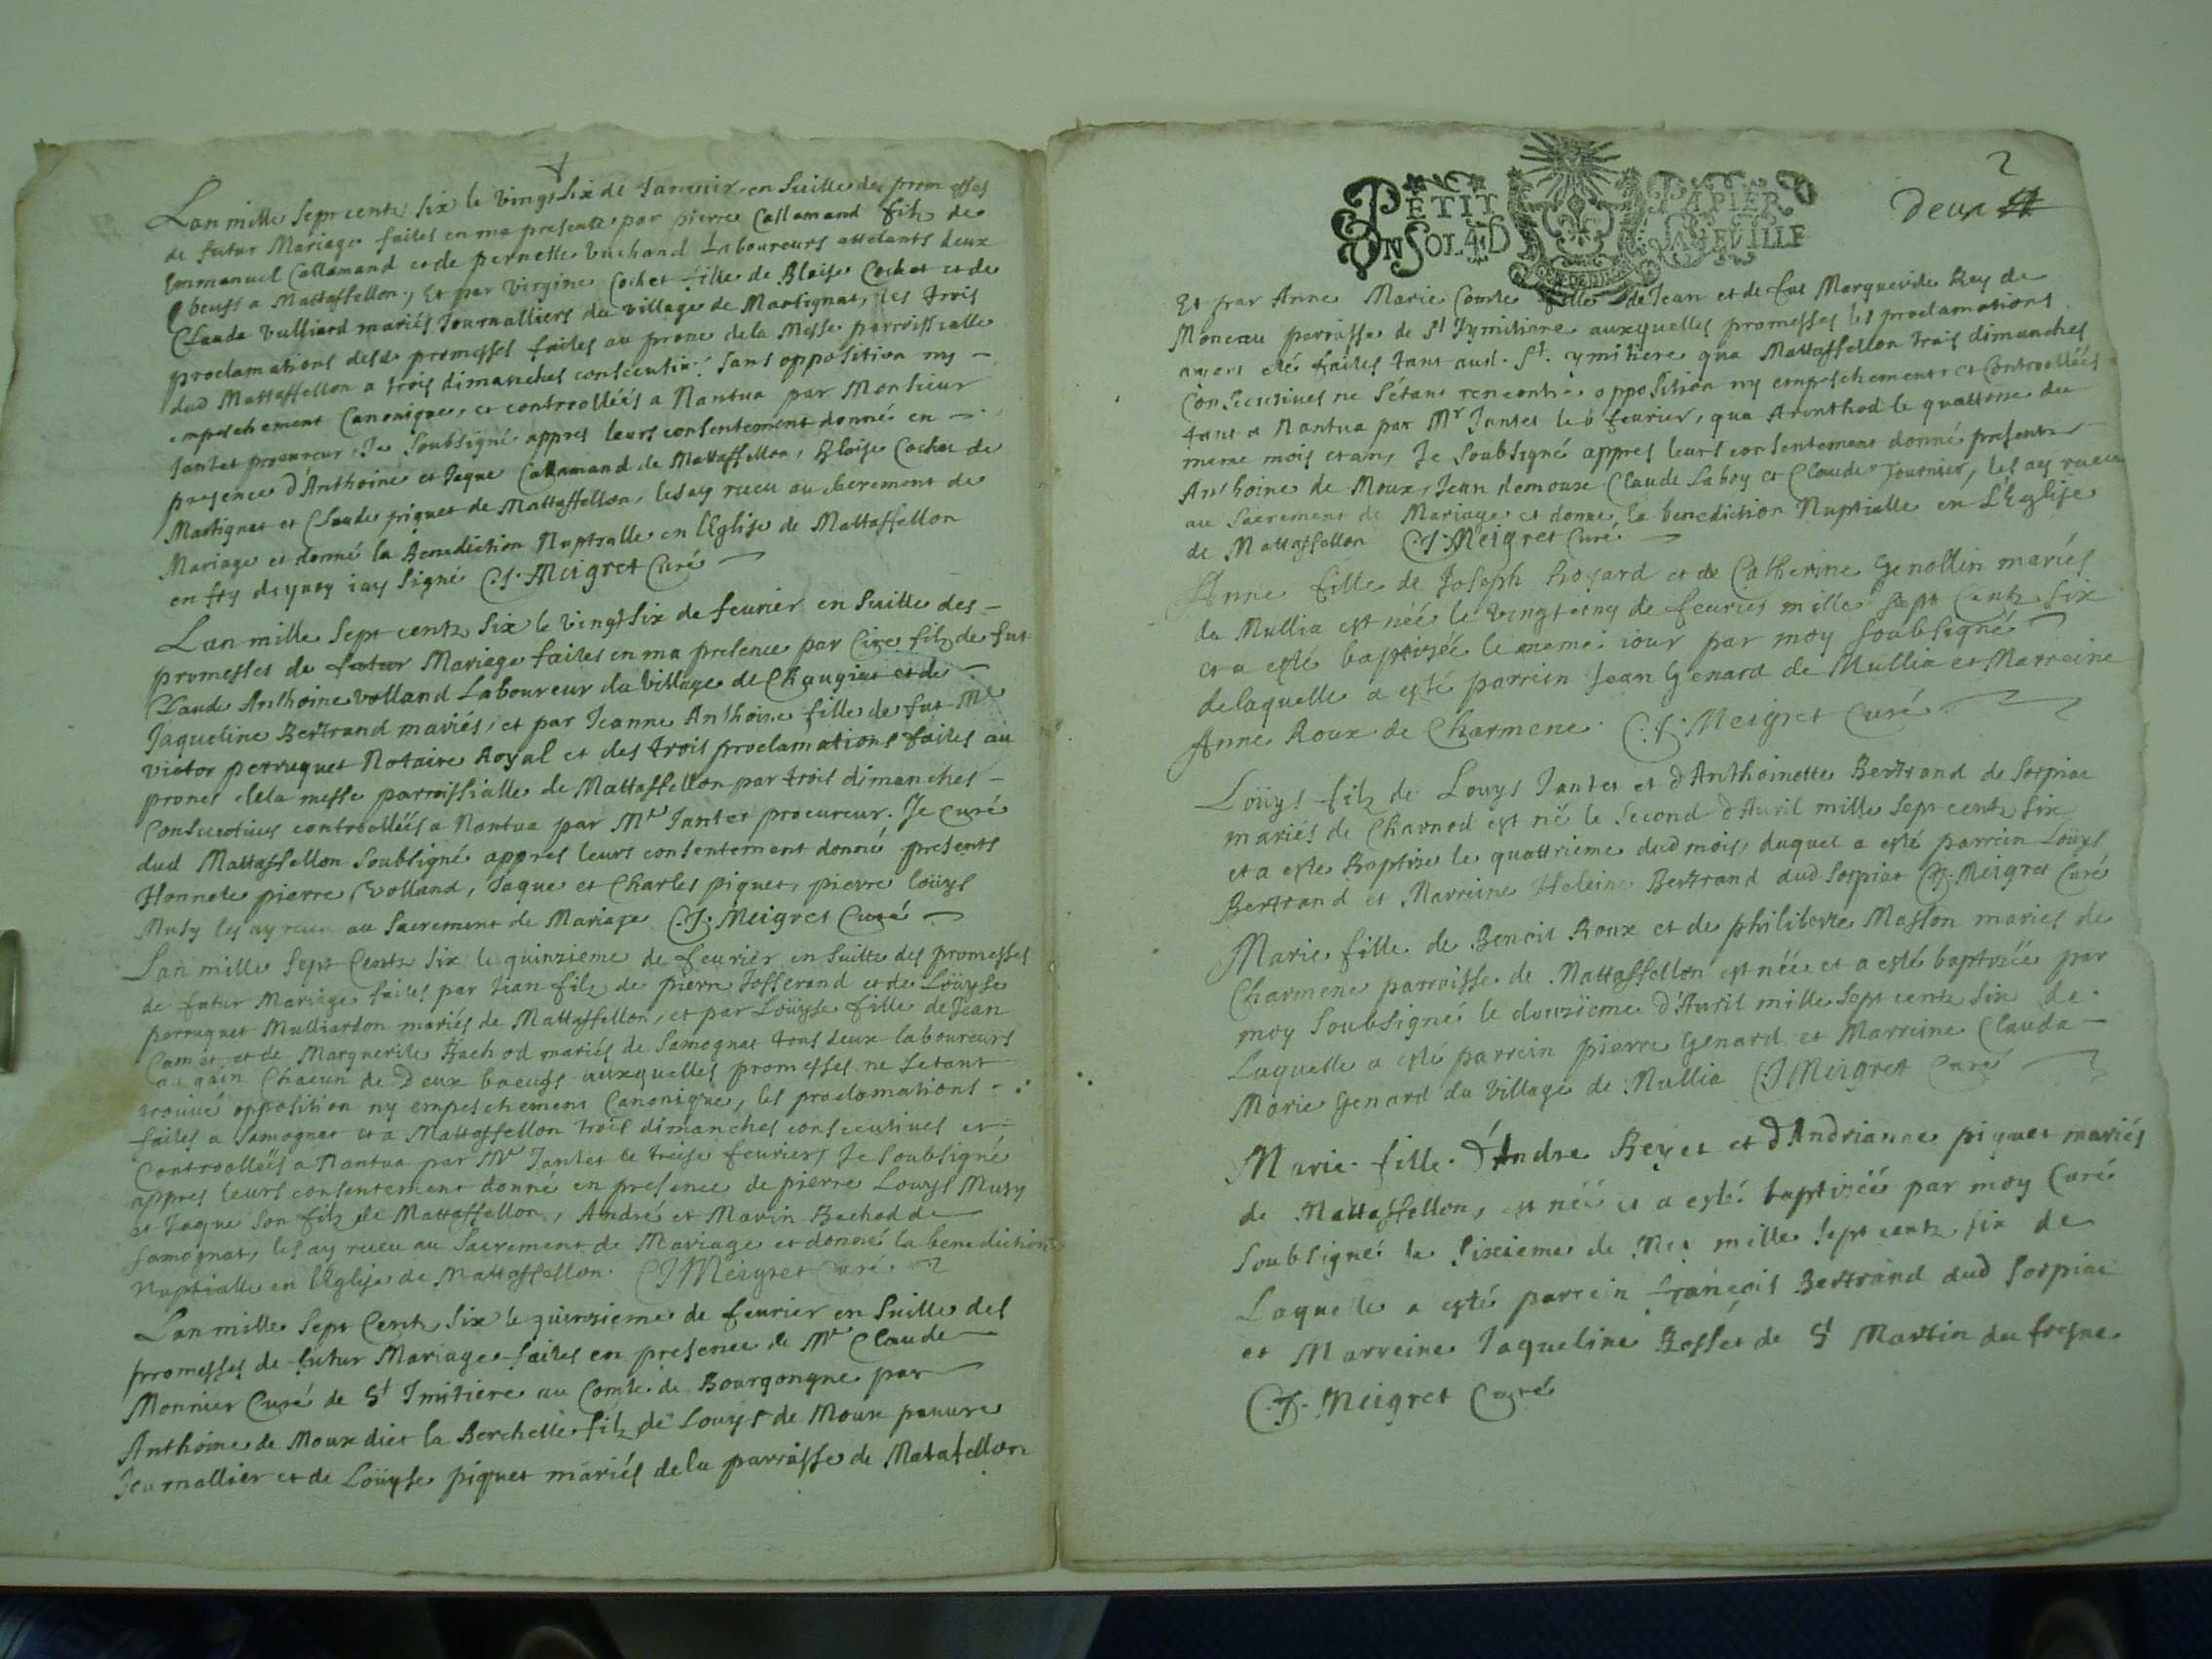 Lan mille Sept centz Six le vingt Six de Januier en Suitte des promesses
de futur Mariage faites en ma presence par pierre Callamand filz de
Emmanuel Callamand et de pernette Vuchand Laboureurs attelants deux
beufs a Mattaffellon, Et par Virgine Cochet fille de Blaise Cochet et de
Clauda Vulliard mariés Journalliers du village de Martignat, les trois
proclamations desd promesses faites au prone de la Messe parroissialle
dud Mattaffellon a trois dimanches consecutiu: Sans opposition ny -
empeschement Canonique, et controolléés a Nantua par Monsieur
Jantet procureur, Je Soubsigné appres leurs consentement donné en -
presence d'Anthoine et Jaque Callamand de Mattaffellon, Blaise Cochet de
Martignat et Claude piquet de Mattaffellon, les ay receu au sacrement de
Mariage et donné la Benediction Nuptialle en l'Eglise de Mattaffellon
en foy dequoy iay Signé C.J. Meigret Curé
Lan mille Sept centz Six le vingt Six de feurier en Suitte des -
promesses de futur Mariage faites en ma presence par Cire filz de fut
Claude Anthoine Volland Laboureur du Village de Chaugiat et de -
Jaqueline Bertrand mariés, et par Jeanne Anthoine fille de fut Me
Victor perruquet Notaire Royal et des trois proclamations faites au
prones de la messe parroissialle de Mattaffellon par trois dimanches -
Consecutiues controolléés a Nantua par Mr Jantet procureur. Je Curé
dud Mattaffellon Soubsigné appres leurs consentement donné presents
Honnete pierre Volland, Jaque et Charles piquet, pierre loüys
Musy les ay receu au Sacrement de Mariage C.J. Meigret Curé
Lan mille Sept Centz Six le quinzieme de feurier en Suitte des promesses
de futur Mariage faites par Jean filz de pierre Josserand et de Loüyse
perruquet Mulliardon mariés de Mattaffellon, et par Loüyse fille de Jean
Camet et de Marguerite Bachod mariés de Samognat tous deux laboureurs
au gain Chacun de Deux boeufs auxquelles promesses ne Setant
trouué opposition ny empeschement Canonique, les proclamations
faites a Samognat et a Mattaffellon trois dimanches consecutiues et
Controolléés a Nantua par Mr Jantet le treise feurier, Je Soubsigné
appres leurs consentement donné en presence de pierre Louys Musy
et Jaque Son filz de Mattaffellon, André et Marin Bachod de
Samognat, les ay receu au Sacrement de Mariage et donné la benediction
Nuptialle en l'Eglise de Mattaffellon. C J Meigret Curé
Lan mille Sept Centz Six le quinzieme de feurier en Suitte des
promesses de futur Mariage faites en presence de Mr Claude
Monnier Curé de St Imitiere au Comté de Bourgongne par
Anthoine de Moux diet la Berchette filz de Louys de Moux pauure
Journallier et de Loüyse piquet mariés de la parroisse de Matafellon
2
deux
PETIT PAPIER
VN SOL 4 D LA FEVILLE
Et par Anne Marie Comte fille de Jean et de fut Marguerite Rey de
Moneau parroisse de St Jymitiere auxquelles promesses les proclamations
ayant eté faites tant aud. St. ymitiere qua Mattaffellon trois dimanches
Consecutiues ne Sétant rencontré opposition ny empeschement et Controolléés
tant a Nantua par Mr Jantet le 6 feurier, qua Arinthod le quattorze du
meme mois et an, Je Soubsigné appres leurs consentement donné presents
Anthoine de Moux, Jean demoux Claude Laboy et Claude Tournier, les ay receu
au Sacrement de Mariage et donné, la benediction Nuptialle en L'Eglise
de Mattaffellon C.J. Meigret Curé.
Anne fille de Joseph Royard et de Catherine Genollin mariés
du Mullia est néé le vingt cinq de feurier mille Sept Centz Six
et a esté baptizéé le meme iour par moy Soubsigné
delaquelle a esté parrein Jean Genard de Mullia et Marreine
Anne Roux de Charmene. C.J. Meigret Curé
Loüys filz de Louys Jantet et d'Anthoinette Bertrand de Sorpiat
mariés de Charnod est né le Second d'Auril mille Sept centz Six
et a esté Baptize le quattrieme dud mois, duquel a esté parrein Loüys
Bertrand et Marreine Heleine Bertrand dud Sorpiat C.J. Meigret Curé
Marie fille de Benoit Roux et de philiberte Masson mariés de
Charmene parroisse de Mattaffellon est néé et a esté baptizéé par
moy Soubsigné le douzieme d'Auril mille Sept centz Six de
Laquelle a esté parrein pierre Genard et Marreine Clauda -
Marie Genard du Village de Mullia C J Meigret Curé
Marie fille d'Andre Reyet et d'Andrianne piquet mariés
de Mattaffellon, est néé et a esté baptizéé par moy Curé
Soubsigné le Sixieme de May mille Sept centz Six de
Laquelle a esté parrein françois Bertrand dud Sorpiat
et Marreine Jaqueline Bosset de St Martin du fresne
C.J. Meigret Curé